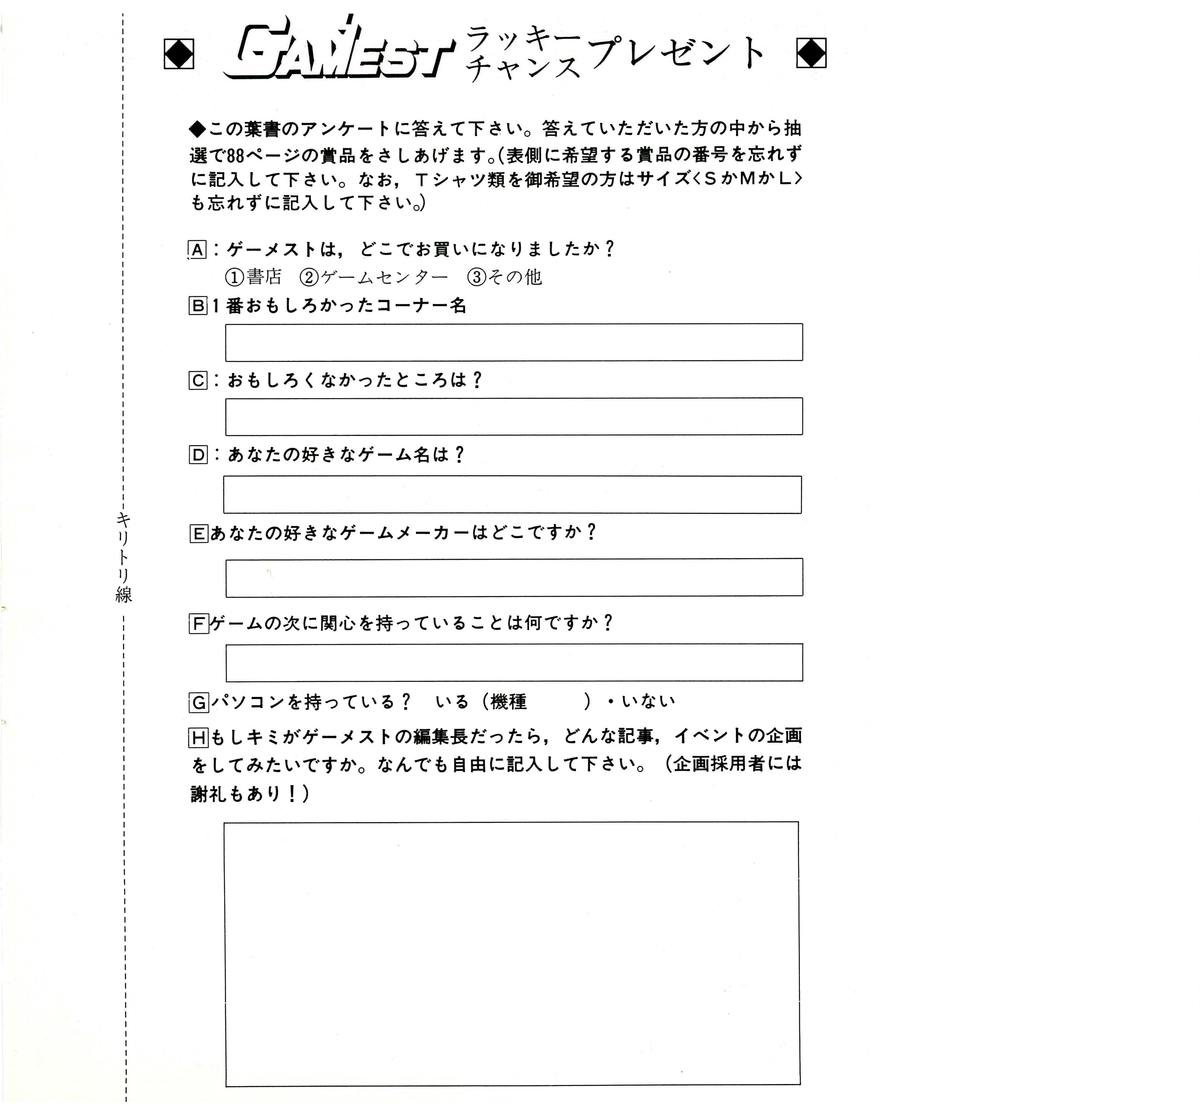 GAMEST ラッキーチャンスプレゼント
◆この葉書のアンケートに答えて下さい。答えていただいた方の中から抽
選で88ページの賞品をさしあげます。(表側に希望する賞品の番号を忘れず
に記入して下さい。なお，Tシャツ類を御希望の方はサイズ〈SかMかL〉
も忘れずに記入して下さい。)
A：ゲーメストは，どこでお買いになりましたか？
①書店 ②ゲームセンター ③その他
B1番おもしろかったコーナー名
C：おもしろくなかったところは？
D：あなたの好きなゲーム名は？
Eあなたの好きなゲームメーカーはどこですか？
Fゲームの次に関心を持っていることは何ですか？
Gパソコンを持っている？ いる（機種　　　）・いない
Hもしキミがゲーメストの編集長だったら，どんな記事，イベントの企画
をしてみたいですか。なんでも自由に記入して下さい。（企画採用者には
謝礼もあり！）
キリトリ線